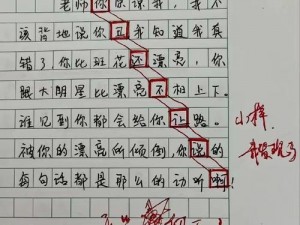 老师你原谅我，我不
该背地说你丑我知道我真
错了，你比班花还漂亮，你
跟大明星比漂亮不相上下。
谁见到你都会给你让路。
被你的漂亮所倾倒，你说的
每句话都是那么的动听啊！
小样，
我发现了